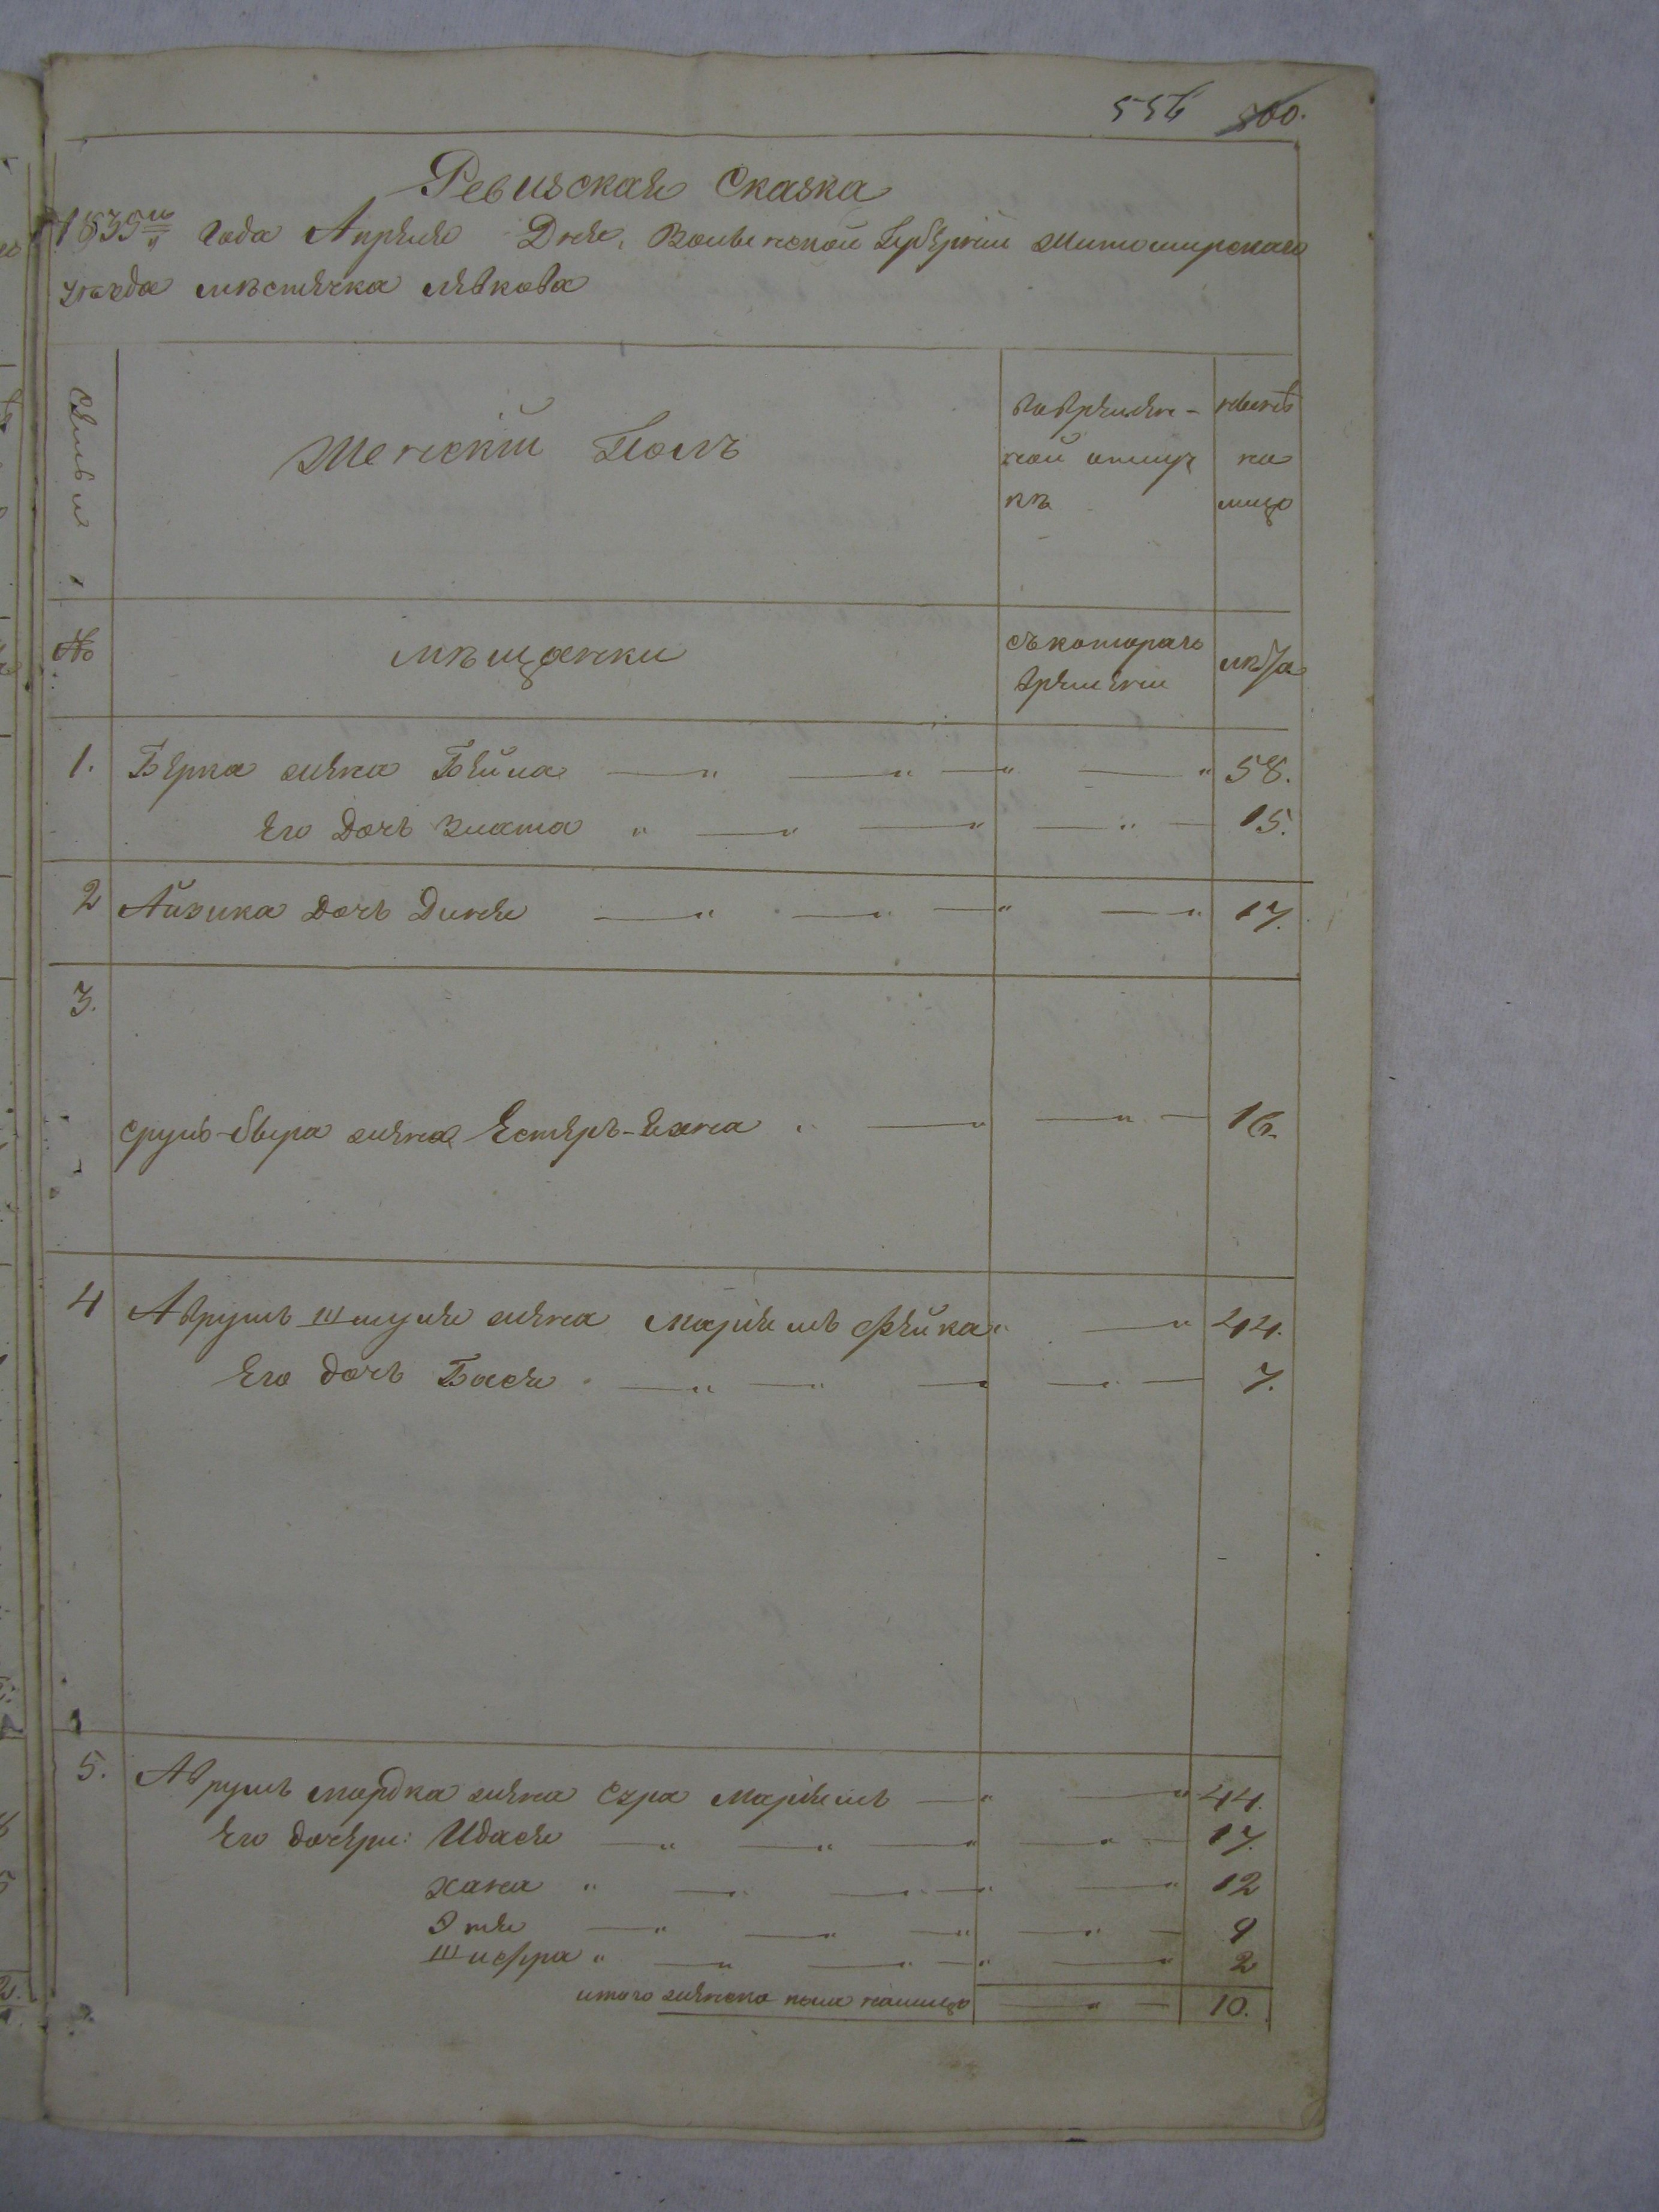 556 700.
Ревизская Сказка
1835го Года Апреля Дня, Волынской Губернии Житомирскаго
уезда местечка Левкова
Семьи
Женский Полъ
во времен-
ной отлуч
ке
ныне
на
лицо
№
мещанки
съ котораго
времени
лета
1. Берка жена Бейла 58.
Его Дочь Злата 15.
2 Айзика Дочь Диня 17.
3.
Срулъ-бера жена Естеръ-Хана 16.
4 Аврумъ Шмуля жена Маріемъ Фейка 44.
Его дочь Бася 7.
5. Аврумъ мордка жена Сура Маріемъ 44.
Его дочери: Идася 17.
Хана 12
Этя 9
Шифра 2
итого женска пола налицо 10.